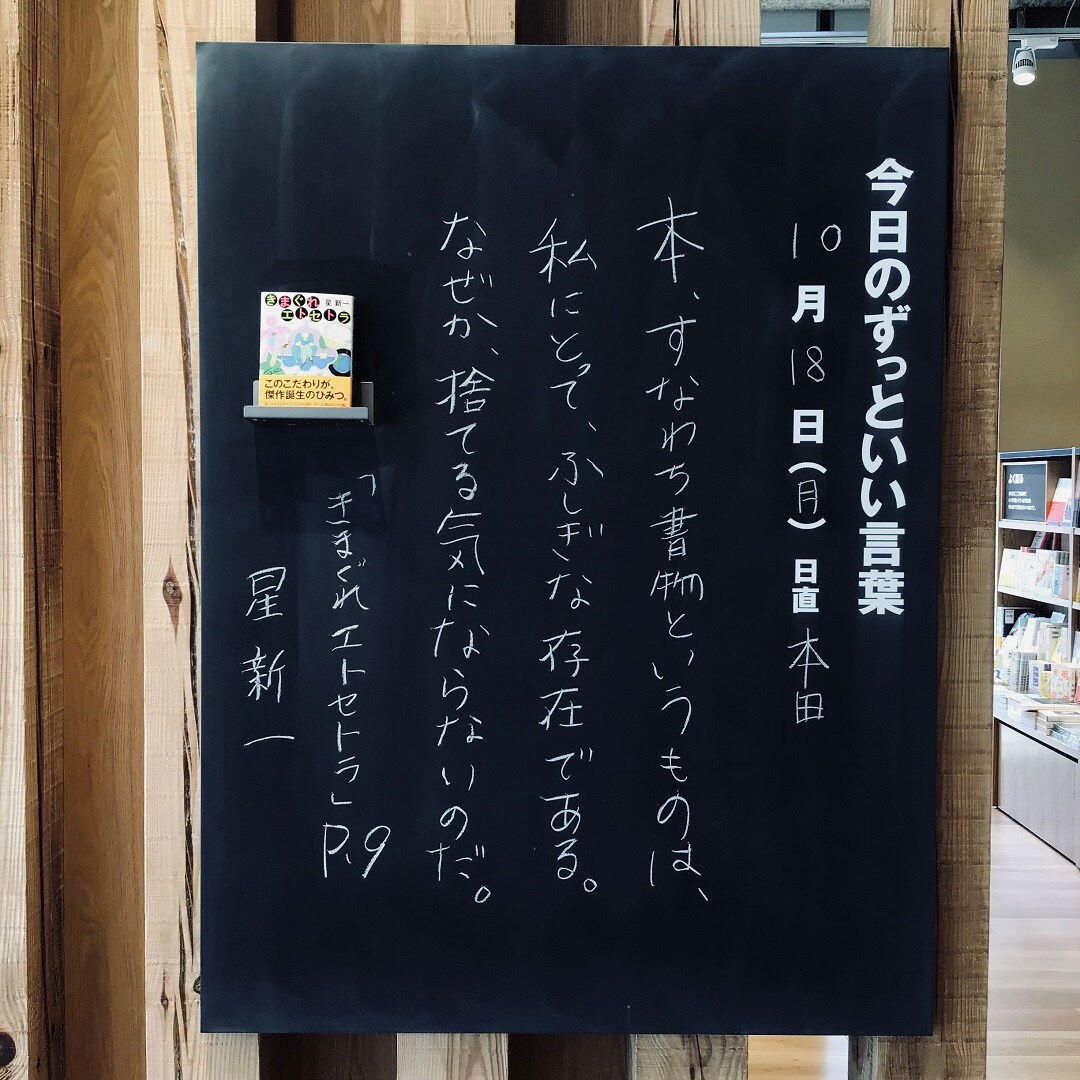 今日のずっといい言葉
10月18日(月) 日直 本田
本、すなわち書物というものは、
私にとって、ふしぎな存在である。
なぜか、捨てる気にならないのだ。
「きまぐれエトセトラ」P.9
星 新一
きまぐれ 星 新一
エトセトラ
このこだわりが、
傑作誕生のひみつ。
よく眠る